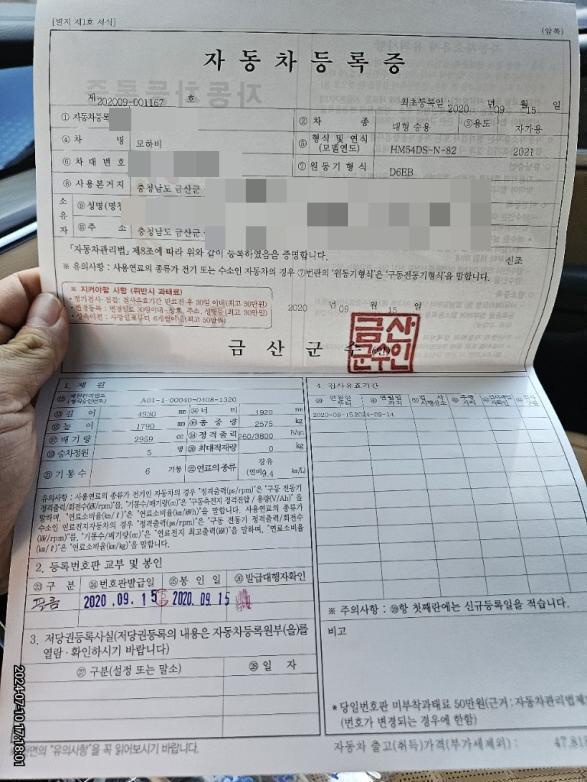 [별지 제1호 서식]
(앞쪽)
자동차등록증
제 202009-001167 호
최초등록일 : 2020 년 09 월 15 일
① 자동차등록
② 차 종 대형 승용 ③용도 자가용
④ 차 명 모하비
⑤ 형식 및 연식 (모델연도) HM54DS-N-82 2021
⑥ 차대번호
⑦ 원동기형식 D6EB
⑧ 사용본거지 충청남도 금산군
소유자
⑨ 성명(명칭
⑪ 주 소 충청남도 금산군
「자동차관리법」 제8조에 따라 위와 같이 등록하였음을 증명합니다.
신조
※ 유의사항 : 사용연료의 종류가 전기 또는 수소인 자동차의 경우 ⑦번란의 '원동기형식'은 '구동전동기형식'을 말합니다.
※ 지켜야할 사항 (위반시 과태료)
2020 년 09 월 15 일
금 산 군 수
금산군수인
1. 제 원
4. 검사유효기간
A01-1-00040-0408-1320
길 이 4930 mm 너 비 1920 mm
높 이 1790 mm 총 중 량 2575 kg
배 기 량 2959 cc 정격출력 260/3800
승차정원 5 명 최대적재량 0 kg
기 통 수 6 기통 연료의종류 경유 (연비9.4 km/L)
2020-09-15 2024-09-14
유의사항 : 사용연료의 종류가 전기인 자동차의 경우 "정격출력(ps/rpm)"은 "구동 전동기
정격출력/회전수(kW/rpm)"을, "기통수/배기량(cc)"은 "구동축전지 정격전압 / 용량(V/Ah)"을
말하며, "연료소비율(km/ℓ)"은 "연료소비율(km/kWh)"을 말합니다. 사용연료의 종류가
수소인 연료전지자동차의 경우 "정격출력(ps/rpm)"은 "구동 전동기 정격출력/회전수
(kW/rpm)"을, "기통수/배기량(cc)"은 "연료전지 최고출력(kW)"을 말하며, "연료소비율
(km/ℓ)"은 "연료소비율(km/kg)"을 말합니다.
2. 등록번호판 교부 및 봉인
구 분 번호판발급일 봉 인 일 발급대행자확인
2020 .09. 15 2020. 09. 15
※ 주의사항 : ㉙항 첫째란에는 신규등록일을 적습니다.
3. 저당권등록사실(저당권등록의 내용은 자동차등록원부(을)를
열람 · 확인하시기 바랍니다)
비고
구분(설정 또는 말소) 일 자
*당일번호판 미부착과태료 50만원(근거: 자동차관리법제
(번호가 변경되는 경우에 한함)
"유의사항"을 꼭 읽어보시기 바랍니다.
자동차 출고(취득)가격(부가세제외):
2024-07-10 17:18:01